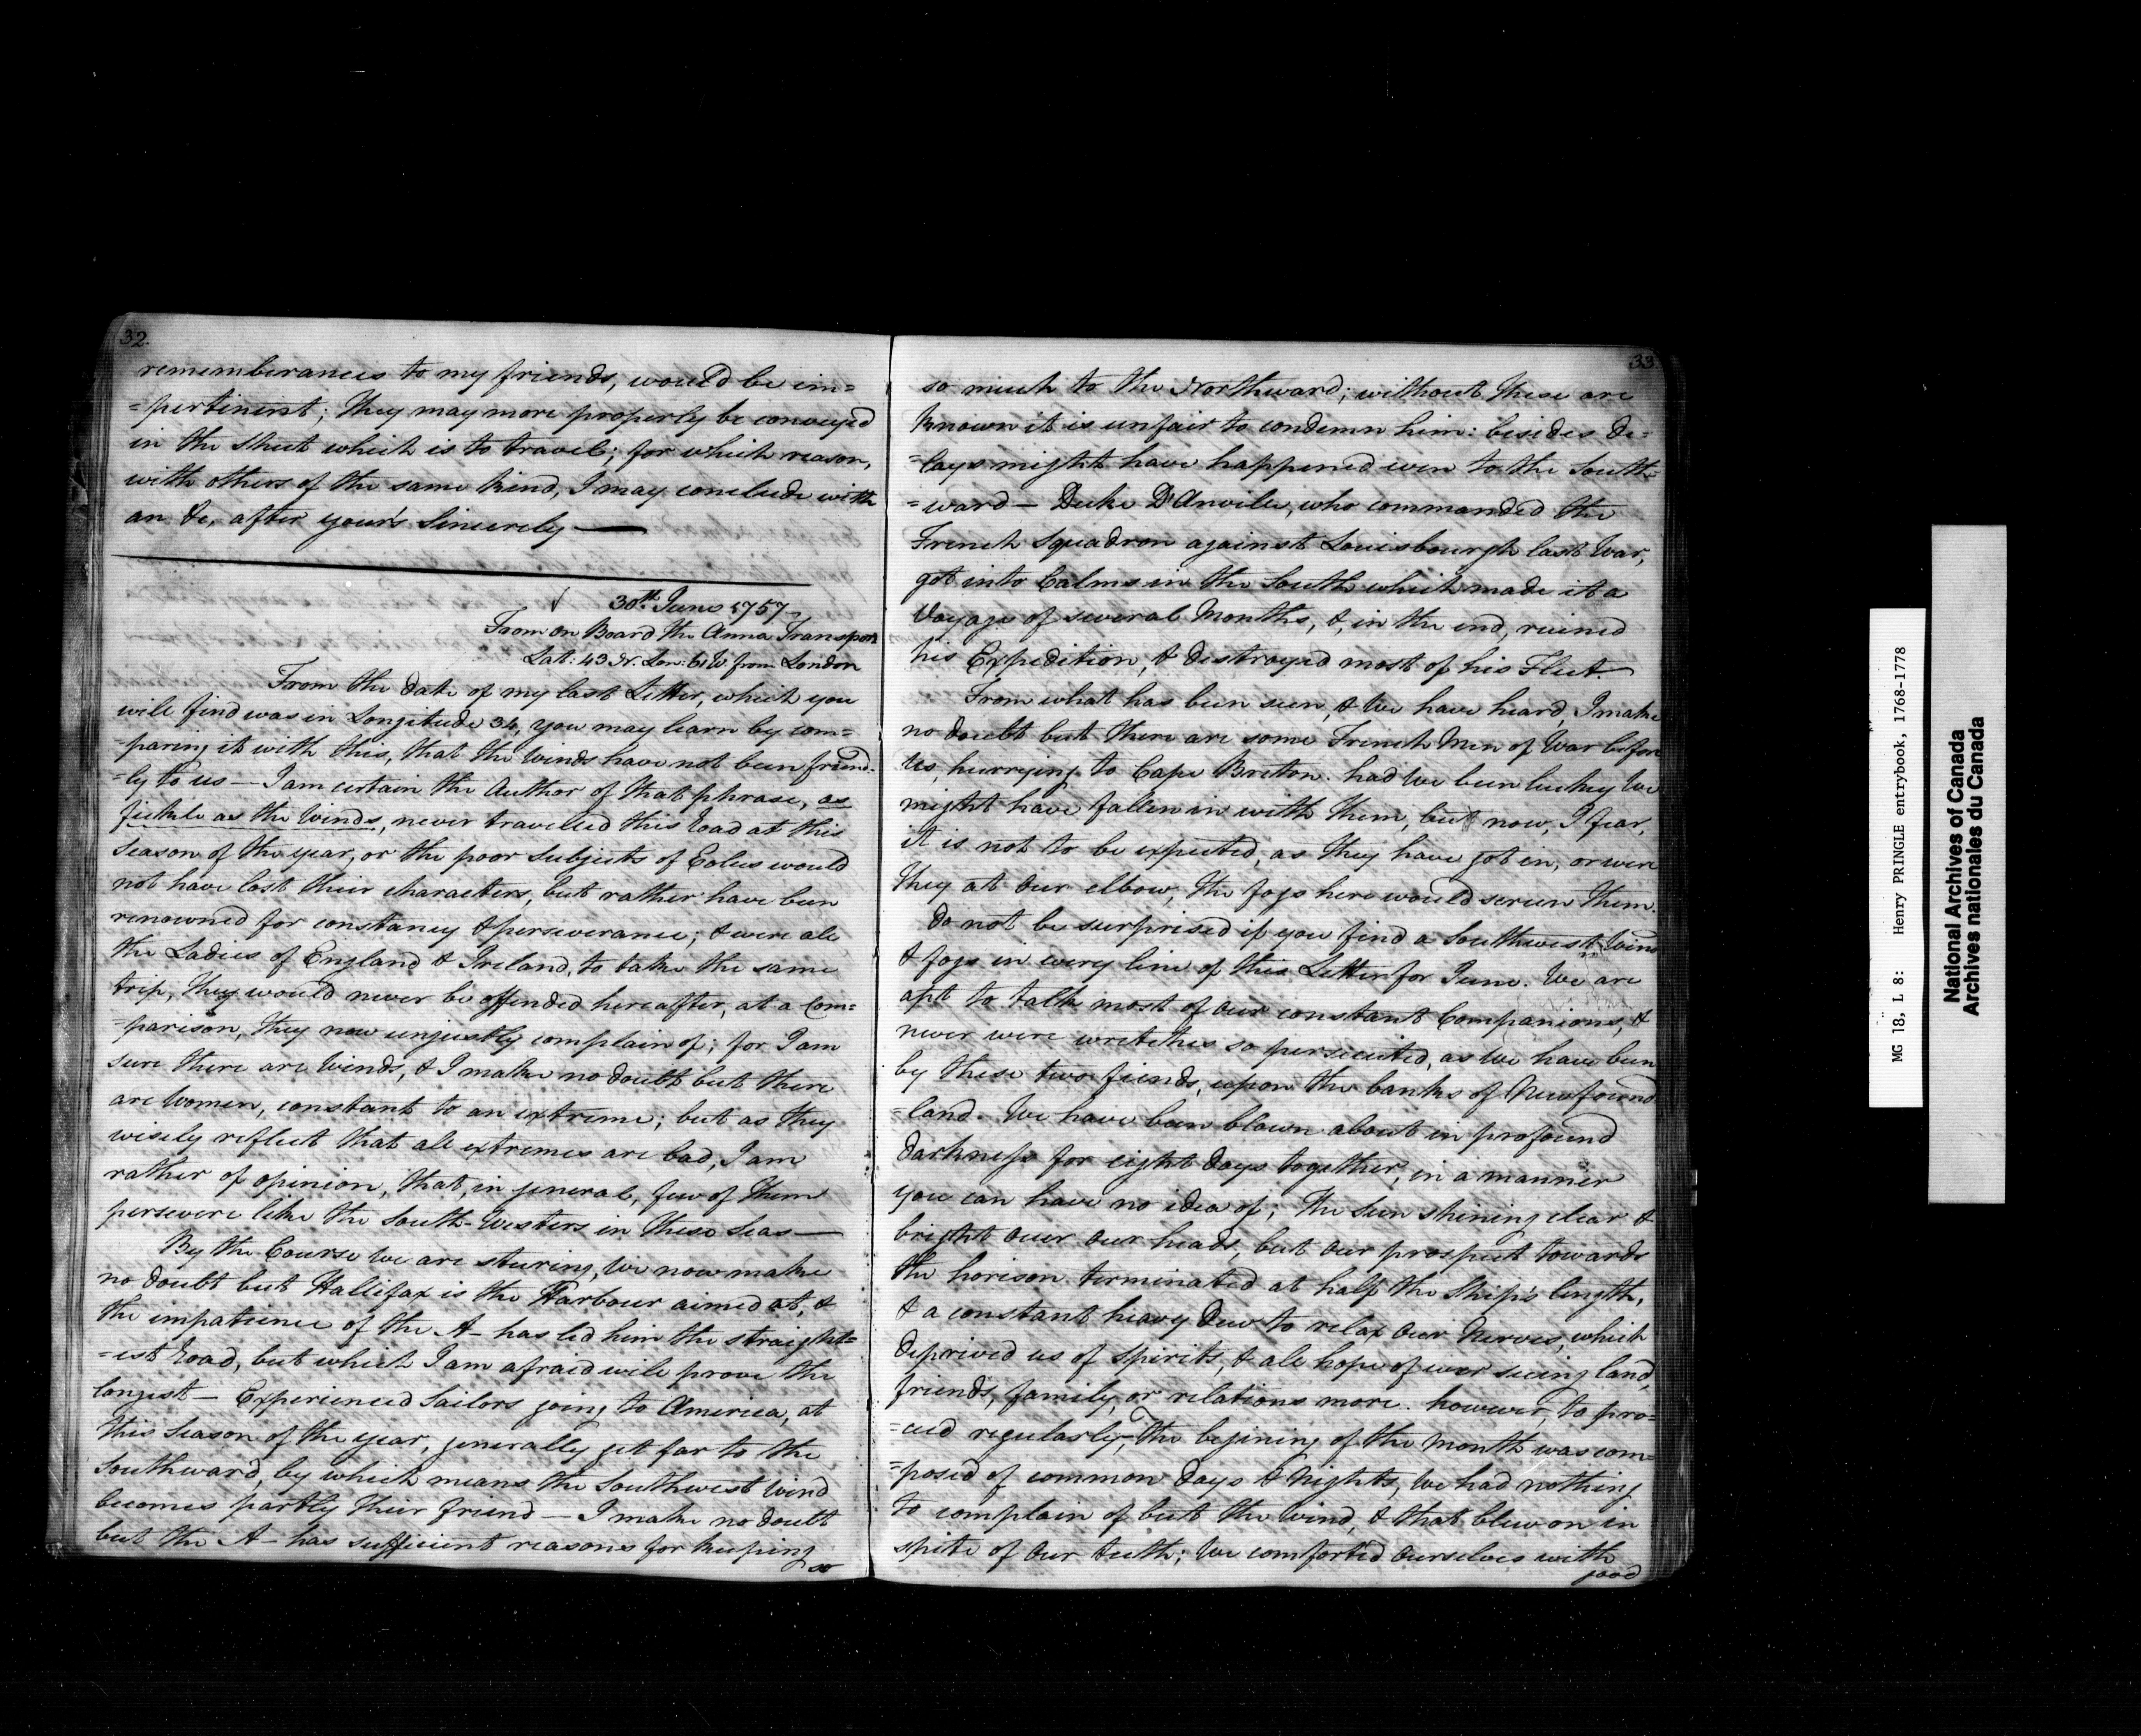 32.
rememberances to my friends, would be im=
=pertinent; They may more properly be conveyed
in the Sheet which is to travel; for which reason,
with others of the same kind, I may conclude with
an &c, after your's Sincerely —
30th. June 1757
From on Board the Anna Transport
Lat: 43 N. Lon: 61 W. from London
From the date of my last Letter, which you
will find was in Longitude 34, you may learn by com=
=paring it with this, that the Winds have not been friend=
=ly to us — I am certain the Author of that phrase, as
fickle as the Winds, never travelled this Road at this
Season of the year, or the poor Subjects of Eolus would
not have lost their characters, but rather have been
renowned for constancy & perseverance; & were all
the Ladies of England & Ireland, to take the same
trip, they would never be offended hereafter, at a Com=
=parison, they now unjustly complain of; for I am
sure there are Winds, & I make no doubt but there
are Women, constant to an extreme; but as they
wisely reflect that all extremes are bad, I am
rather of opinion, that, in general, few of them
persevere like the South-Westers in these Seas —
By the Course We are steering, We now make
no doubt but Hallifax is the Harbour aimed at, &
the impatience of the A— has led him the straight=
=est Road, but which I am afraid will prove the
longest — Experienced Sailors going to America, at
this Season of the year, generally get far to the
Southward, by which means the Southwest Wind
becomes partly their friend — I make no doubt
but the A— has sufficient reasons for keeping
so
33
so much to the Northward; without these are
known it is unfair to condemn him: besides de=
=lays might have happened even to the South=
=ward — Duke D'Anville, who commanded the
French Squadron against Louisbourgh last War,
got into Calms in the South which made it a
Voyage of several Months, &, in the end, ruined
his Expedition, & destroyed most of his Fleet.
From what has been seen, & We have heard, I make
no doubt but there are some French Men of War before
Us, hurrying to Cape Briton. had We been lucky We
might have fallen in with them, but now, I fear,
it is not to be expected, as they have got in, or were
they at our elbow, the fogs here would screen them.
Do not be surprised if you find a Southwest Wind
& fogs in every line of this Letter for June. We are
apt to talk most of our constant Companions, &
never were wretches so persecuted, as We have been
by these two fiends, upon the banks of Newfound
=land. We have been blown about in profound
darkness for eight days together, in a manner
you can have no idea of; The Sun shining clear &
bright over our heads, but our prospect towards
the horison terminated at half the Ship's length,
& a constant heavy Dew to relax our Nerves, which
deprived us of Spirits, & all hope of ever seeing land,
friends, family, or relations more. however, to pro=
=ceed regularly, The begining of the Month was com=
=posed of common days & Nights, We had nothing
to complain of but the Wind, & that blew on in
spite of our teeth; We comforted ourselves with
good
MG 18, L 8: Henry PRINGLE entrybook, 1768-1778
National Archives of Canada
Archives nationales du Canada